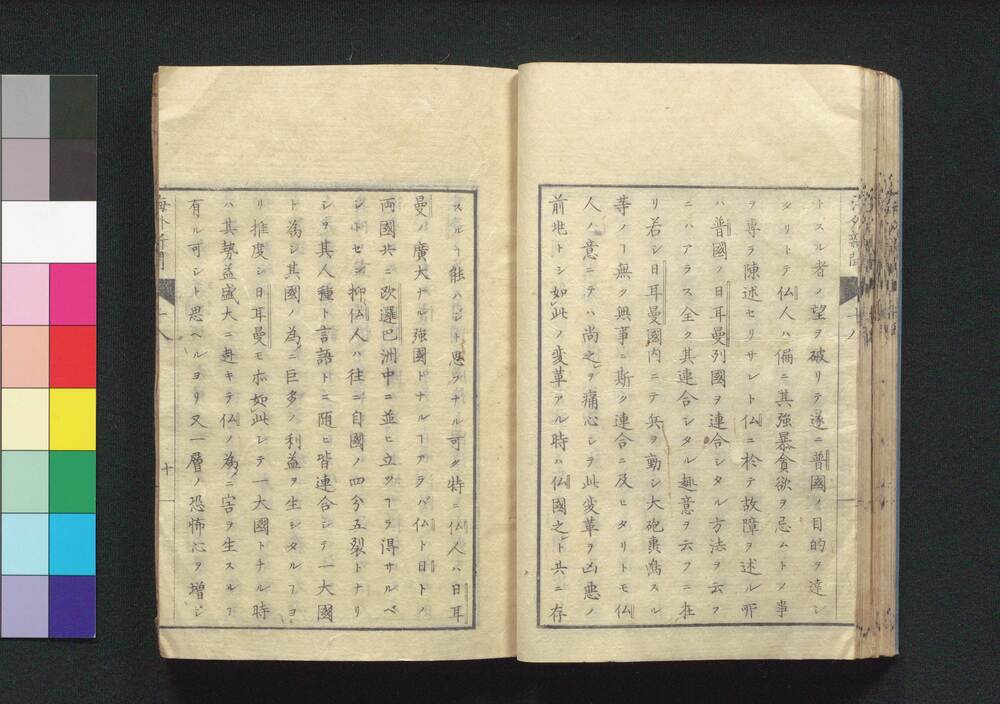 トスル者ノ望ヲ破リテ遂ニ普國ノ目的ヲ達シ
タリトテ仏人ハ偏ニ其強暴貪欲ヲ忌ムトノ事
ヲ専ラ陳述セリサレト仏ニ於テ故障ヲ述ル所
ハ普國ノ日耳曼列國ヲ連合シタル方法ヲ云フ
ニハアラス全ク其連合シタル趣意ヲ云フニ在
リ若シ日耳曼國内ニテ兵ヲ動シ大砲轟スル
等ノヿ無ク無事ニ斯ク連合ニ及ヒタリトモ仏
人ノ意ニテハ尚之ヲ痛心シテ此変革ヲ凶悪ノ
前兆トシ如此ノ変革アル時ハ仏國之ト共ニ存
スルヿ能ハシト思フナル可ク特ニ仏人ハ日耳
曼ノ廣大ナル強國トナルヿアラバ仏ト日トノ
両國共ニ欧邏巴洲中ニ並ヒ立ツヿヲ得サルベ
シトセシ抑仏人ハ往ニ自國ノ四分五裂トナリ
シヲ其人種ト言語トニ随ヒ皆連合シテ一大國
ト為シ其國ノ為ニ巨多ノ利益ヲ生シタルヿヨ
リ推度シ日耳曼モ亦如此シテ一大國トナル時
ハ其勢益盛大ニ赴キテ仏ノ為ニ害ヲ生スルヿ
有ル可シト思ヘルヨリ又一層ノ恐怖心ヲ増シ
海外新聞
十八
十